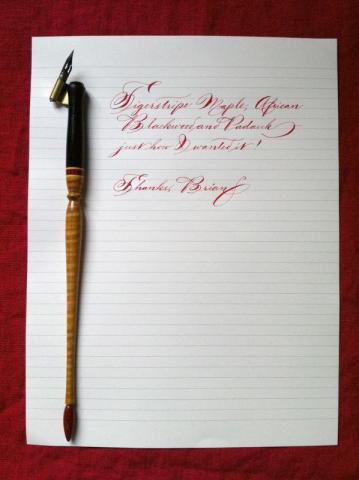 Tigerstripe Maple, African
Blackwood, and Padauk
just how I wanted it!
Thanks, Brian